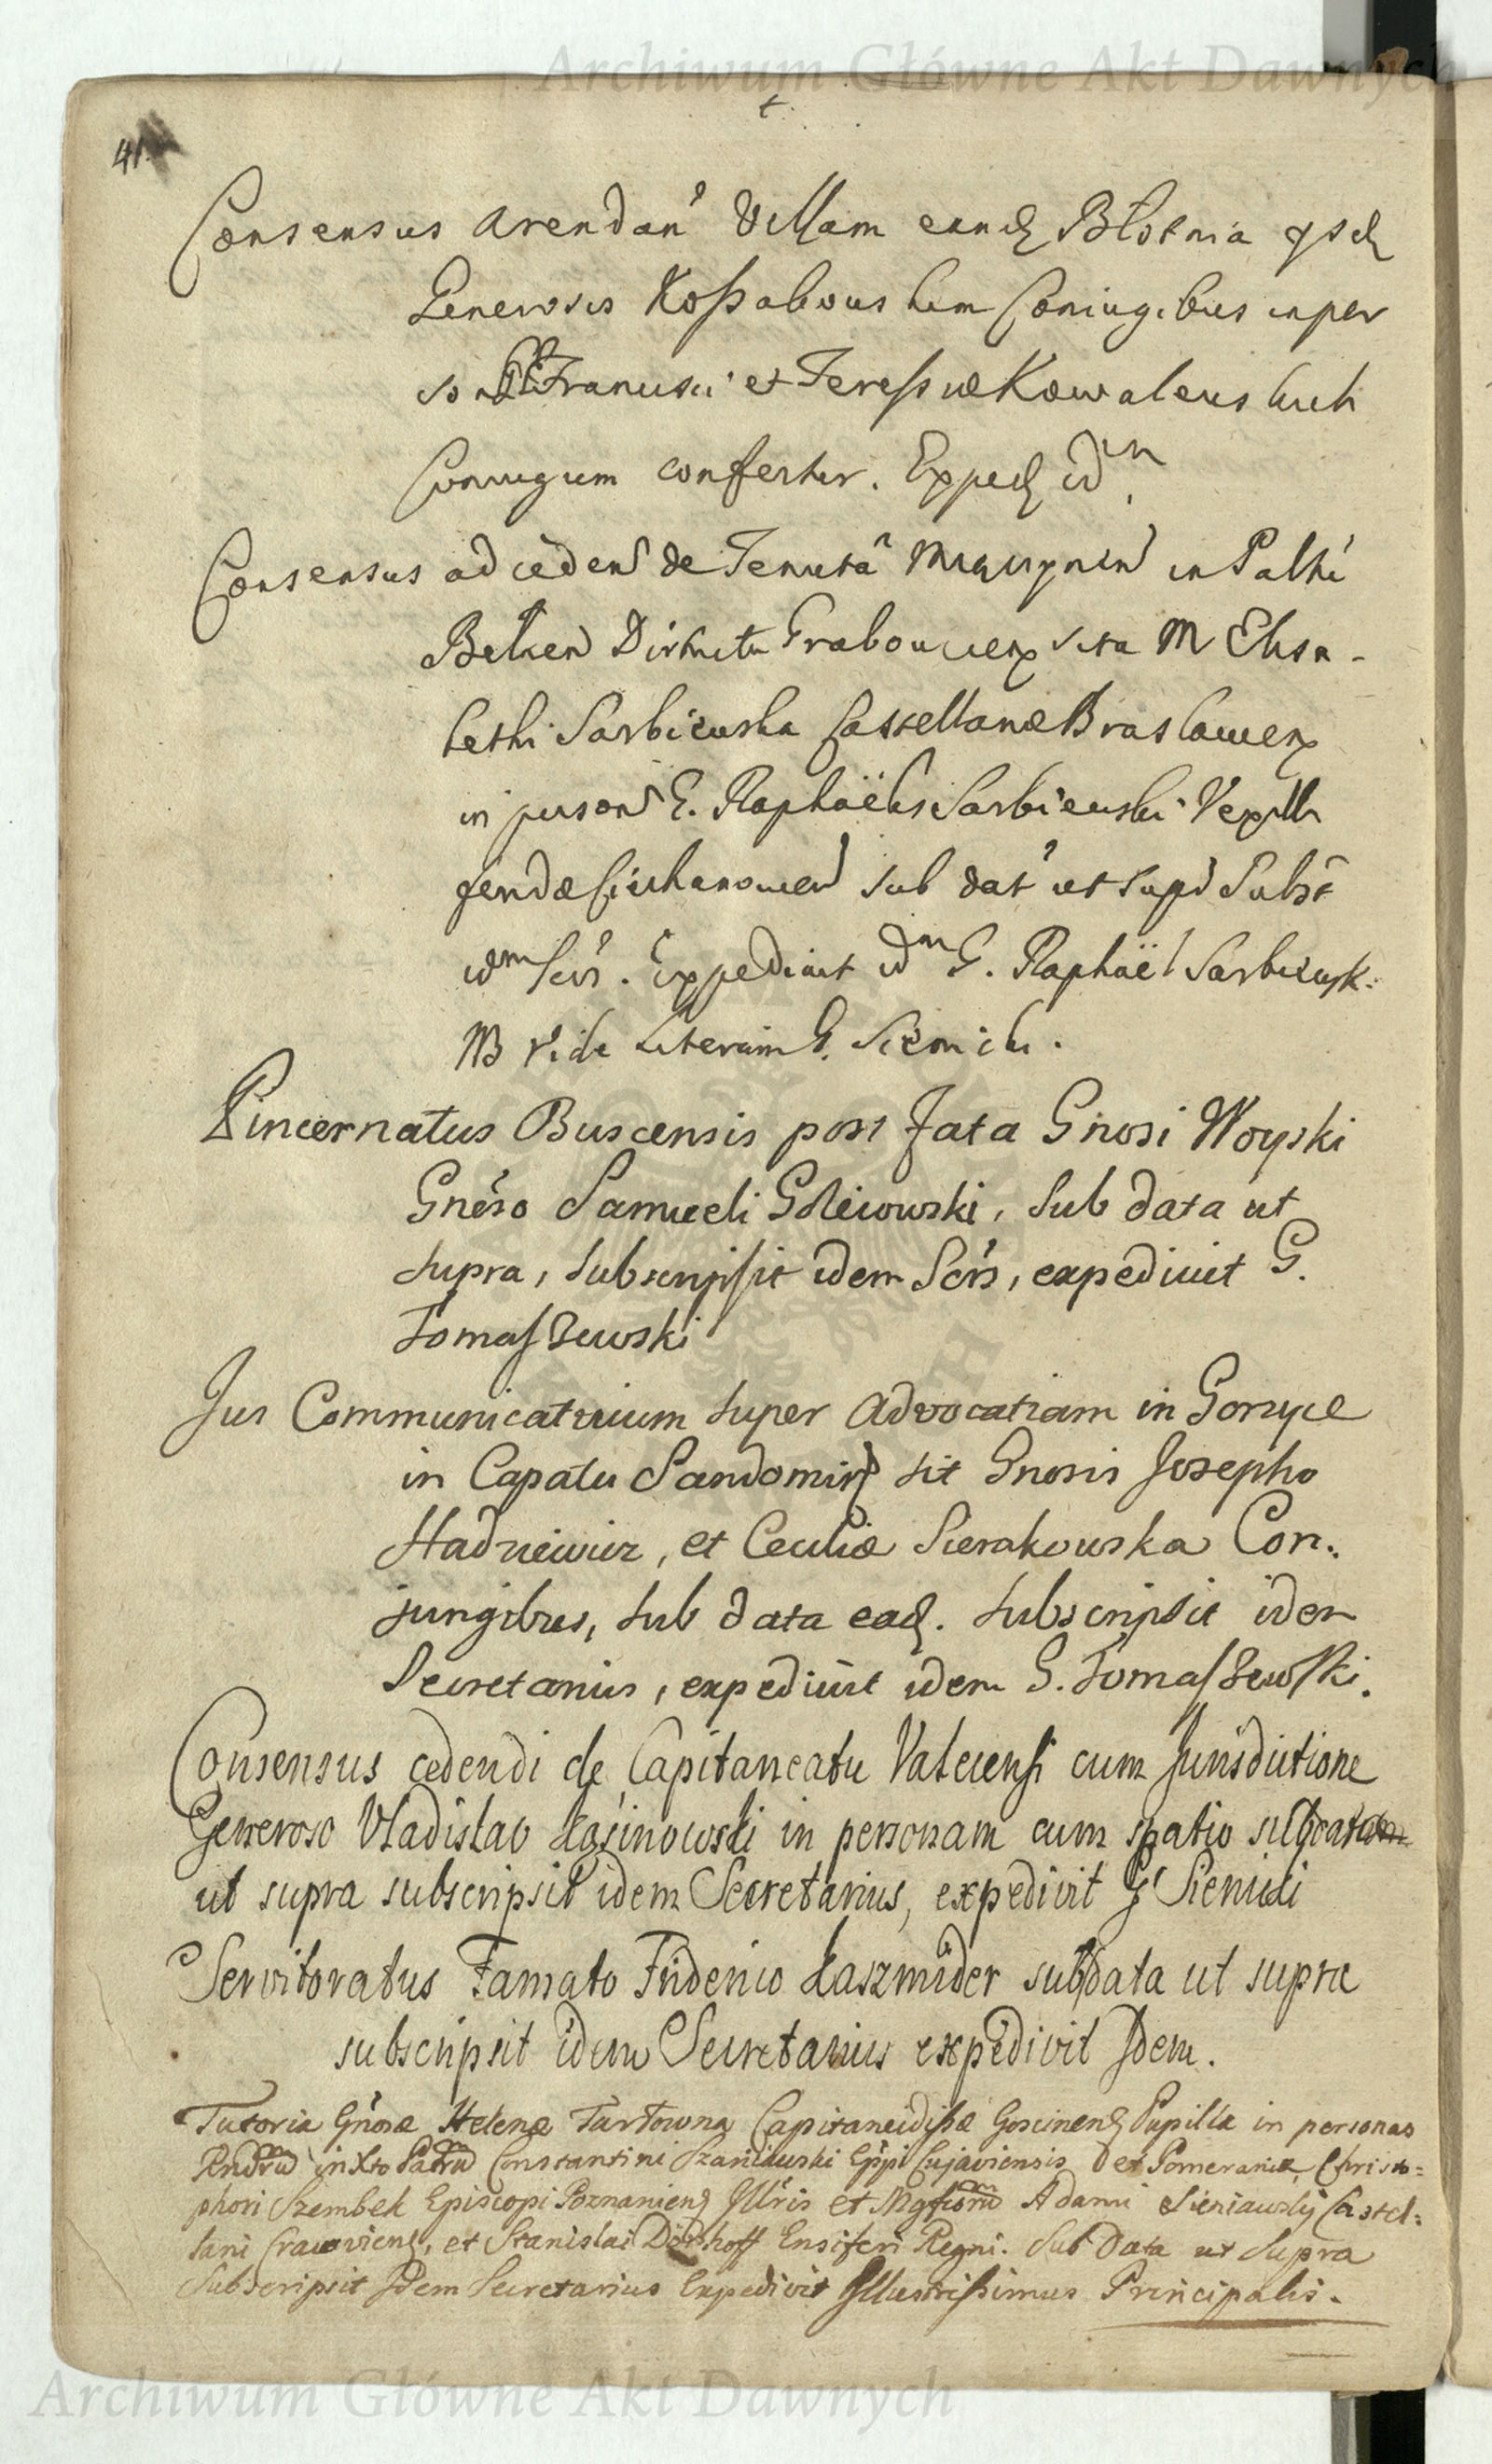 Archiwum Główne Akt Dawnych
41
Consensus arendan Villam eand Błotnia
Generosis Kossakowskim Coniugibus in per
son Francisci et Teressiæ Kowalewskich
Coniugum confertur. Exped id m
Consensus ad ceden de Tenuta in Paltu
Belzen Districtu Graboviecen sita M Elisa-
bethi Sarbiewska Castellanæ Braslavien
in person G. Raphaëlis Sarbiewski Vexilli
ferdæ Ciechanovien sub dat ut supr Subst
idm Secr. Expedivit idm G. Raphaël Sarbiewsk:
NB Vide Literam G. Siemicki.
Pincernatus Buscensis post Fata Gnosi Woyski
Gnëso Samueli Goleiowski, Sub data ut
supra, subscripsit idem Scrs, expedivit G.
Tomaszewski
Jus Communicativum super Advocatiam in Gorzyce
in Capatu Sandomir sit Gnosis Josepho
Hadziewicz, et Ceciliæ Sierakowska Con:
jungibus, sub data ead. subscripsit idem
Secretarius, expedivit idem G. Tomaszewski.
Consensus cedendi de Capitaneatu Valecensi cum Jurisdictione
Generoso Vladislao Łosinowski in personam cum spatio
ut supra subscripsit idem Secretarius, expedivit G Siemicki
Servitoratus Famato Friderico Łaszmider sub data ut supra
subscripsit idem Secretarius expedivit Idem.
Tutoria Gnosæ Helenæ Tarłowna Capitaneidissæ Goscinens Pupillæ in personas
Rndrm in Xto Patrum Constantini Szaniawski Eppi Cujaviensis et Pomeraniæ, Christo=
phori Szembek Episcopi Poznaniens Illris et Mgficorum Adami Sieniawsky Castel:
lani Cracoviens, et Stanislai Dönhoff Ensiferi Regni. Sub Data ut Supra
Subscripsit Idem Secretarius Expedivit Illustrissimus Principalis.
Archiwum Główne Akt Dawnych